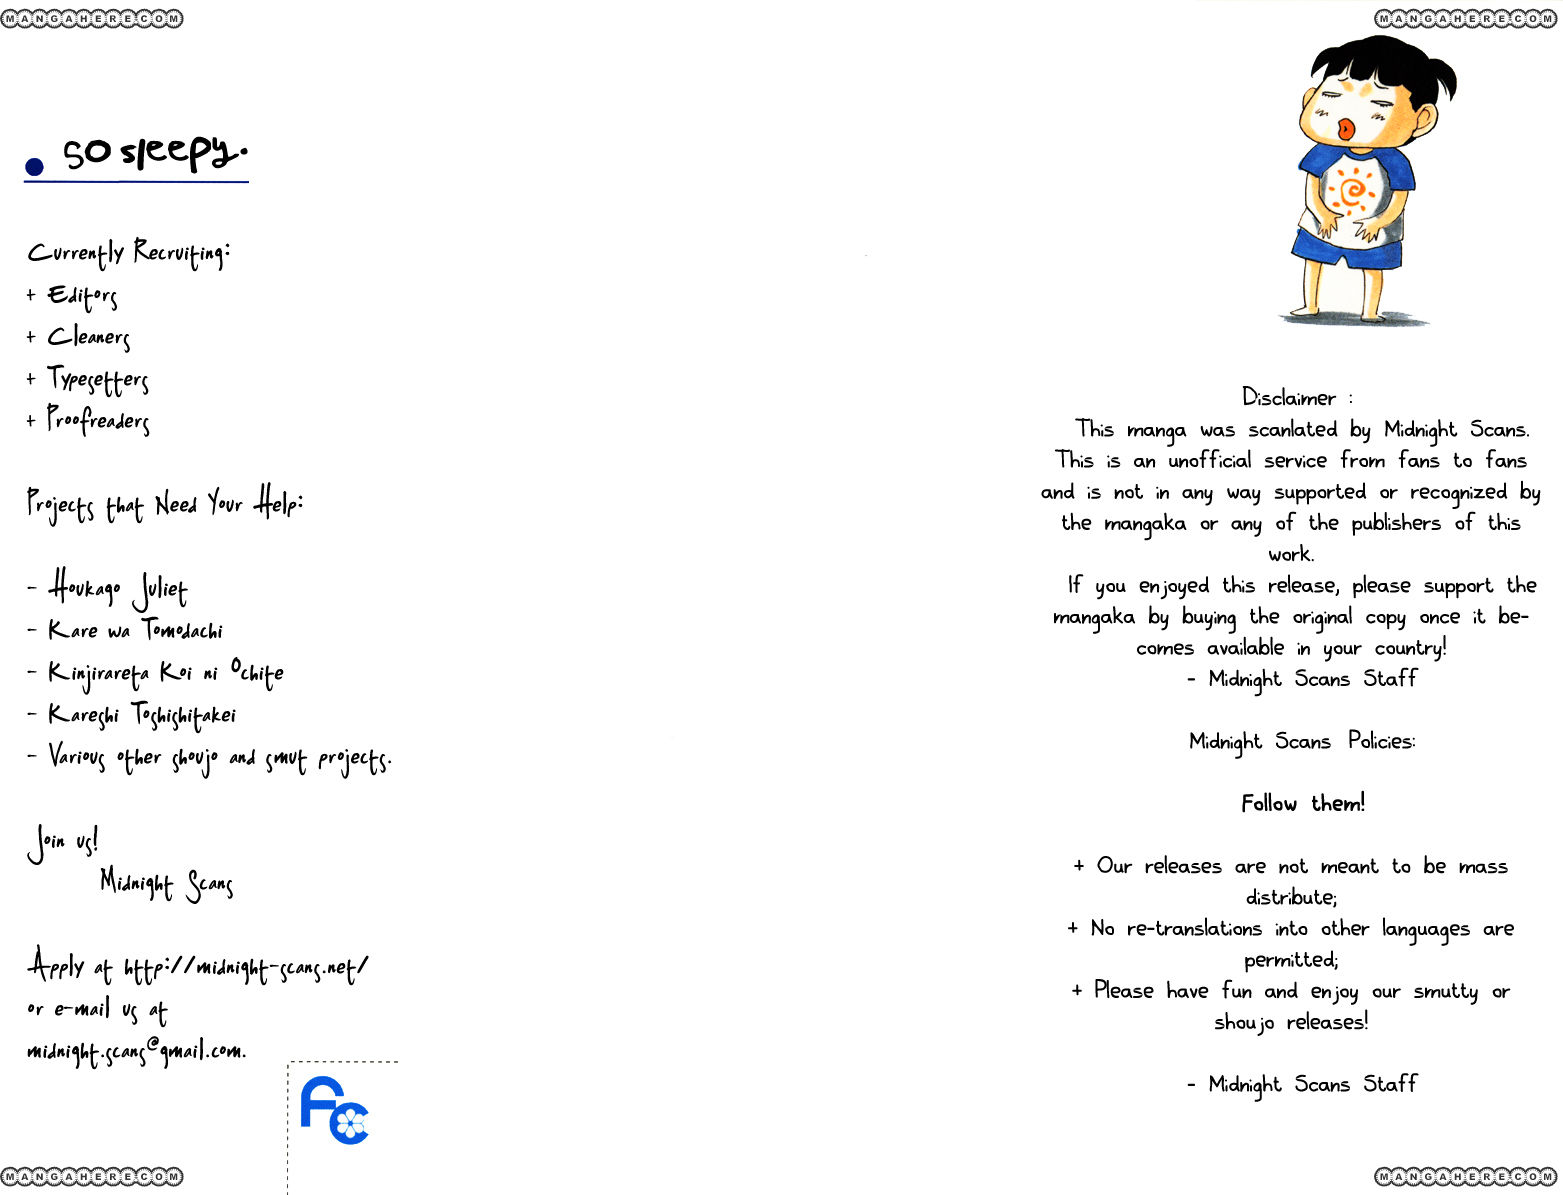 MANGAHERE.COM
MANGAHERE.COM
so sleepy.
Currently Recruiting:
+ Editors
+ Cleaners
+ Typesetters
+ Proofreaders
Projects that Need Your Help:
- Houkago Juliet
- Kare wa Tomodachi
- Kinjirareta Koi ni Ochite
- Kareshi Toshishitakei
- Various other shoujo and smut projects.
Join us!
Midnight Scans
Apply at http://midnight-scans.net/
or e-mail us at
midnight.scans@gmail.com.
FC
Disclaimer :
This manga was scanlated by Midnight Scans.
This is an unofficial service from fans to fans
and is not in any way supported or recognized by
the mangaka or any of the publishers of this
work.
If you enjoyed this release, please support the
mangaka by buying the original copy once it be-
comes available in your country!
- Midnight Scans Staff
Midnight Scans Policies:
Follow them!
+ Our releases are not meant to be mass
distribute;
+ No re-translations into other languages are
permitted;
+ Please have fun and enjoy our smutty or
shoujo releases!
- Midnight Scans Staff
MANGAHERE.COM
MANGAHERE.COM